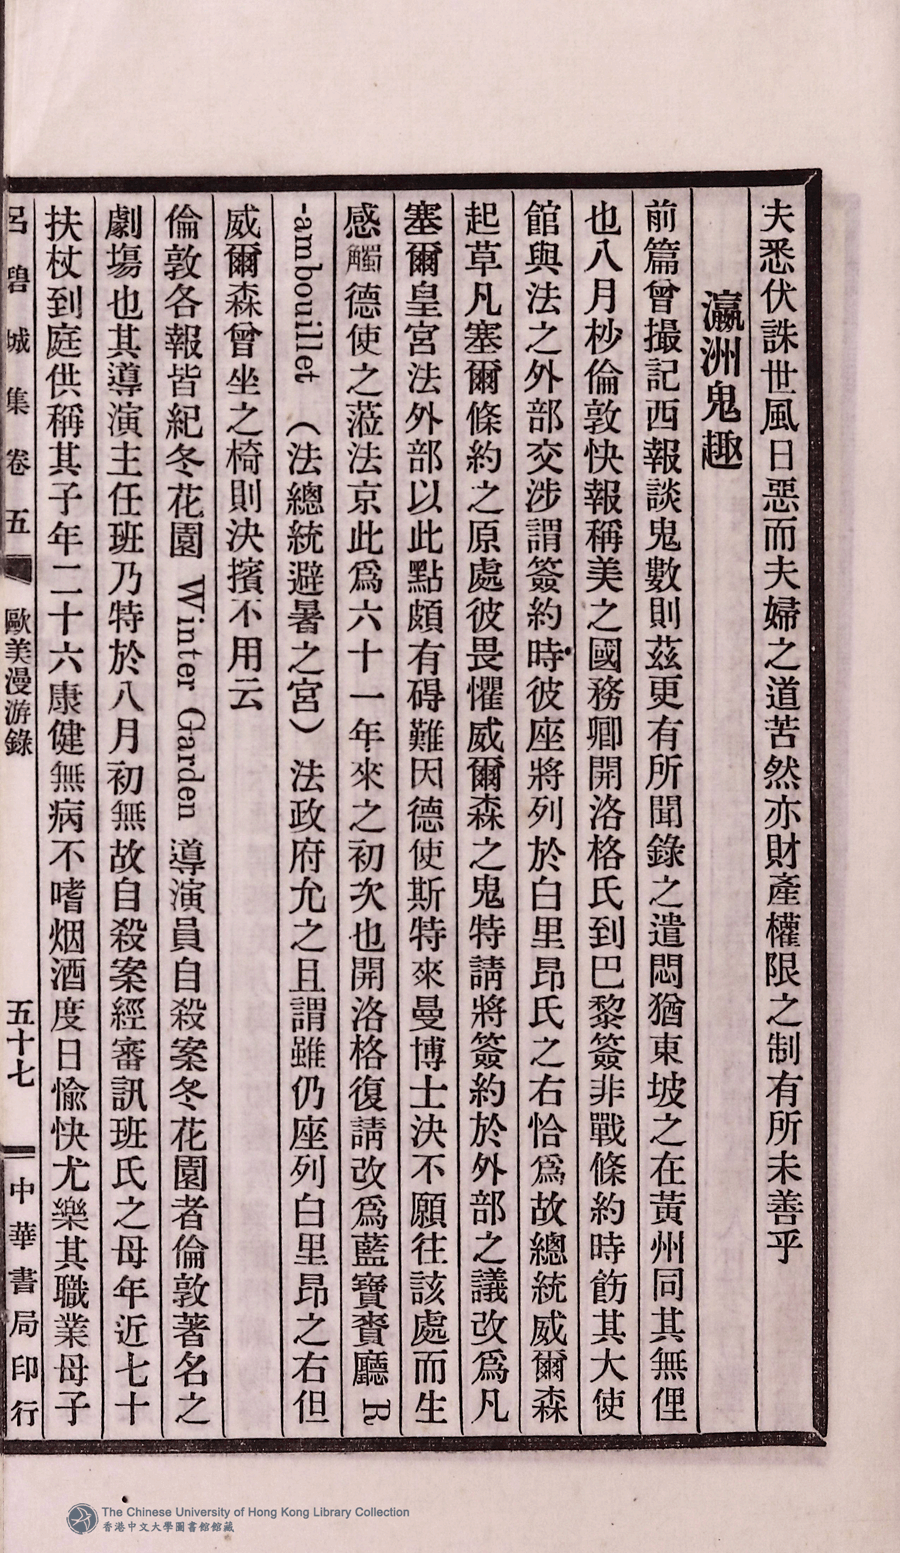 夫悉伏誅世風日惡而夫婦之道苦然亦財產權限之制有所未善乎
瀛洲鬼趣
前篇曾撮記西報談鬼數則茲更有所聞錄之遣悶猶東坡之在黃州同其無俚
也八月杪倫敦快報稱美之國務卿開洛格氏到巴黎簽非戰條約時飭其大使
館與法之外部交涉謂簽約時彼座將列於白里昂氏之右恰爲故總統威爾森
起草凡塞爾條約之原處彼畏懼威爾森之鬼特請將簽約於外部之議改爲凡
塞爾皇宮法外部以此點頗有碍難因德使斯特來曼博士決不願往該處而生
感觸德使之蒞法京此爲六十一年來之初次也開洛格復請改爲藍寶賚廳 R
-ambouillet （法總統避暑之宮）法政府允之且謂雖仍座列白里昂之右但
威爾森曾坐之椅則決擯不用云
倫敦各報皆紀冬花園 Winter Garden 導演員自殺案冬花園者倫敦著名之
劇塲也其導演主任班乃特於八月初無故自殺案經審訊班氏之母年近七十
扶杖到庭供稱其子年二十六康健無病不嗜烟酒度日愉快尤樂其職業母子
呂碧城集卷五 歐美漫游錄 五十七 中華書局印行
The Chinese University of Hong Kong Library Collection
香港中文大學圖書館館藏